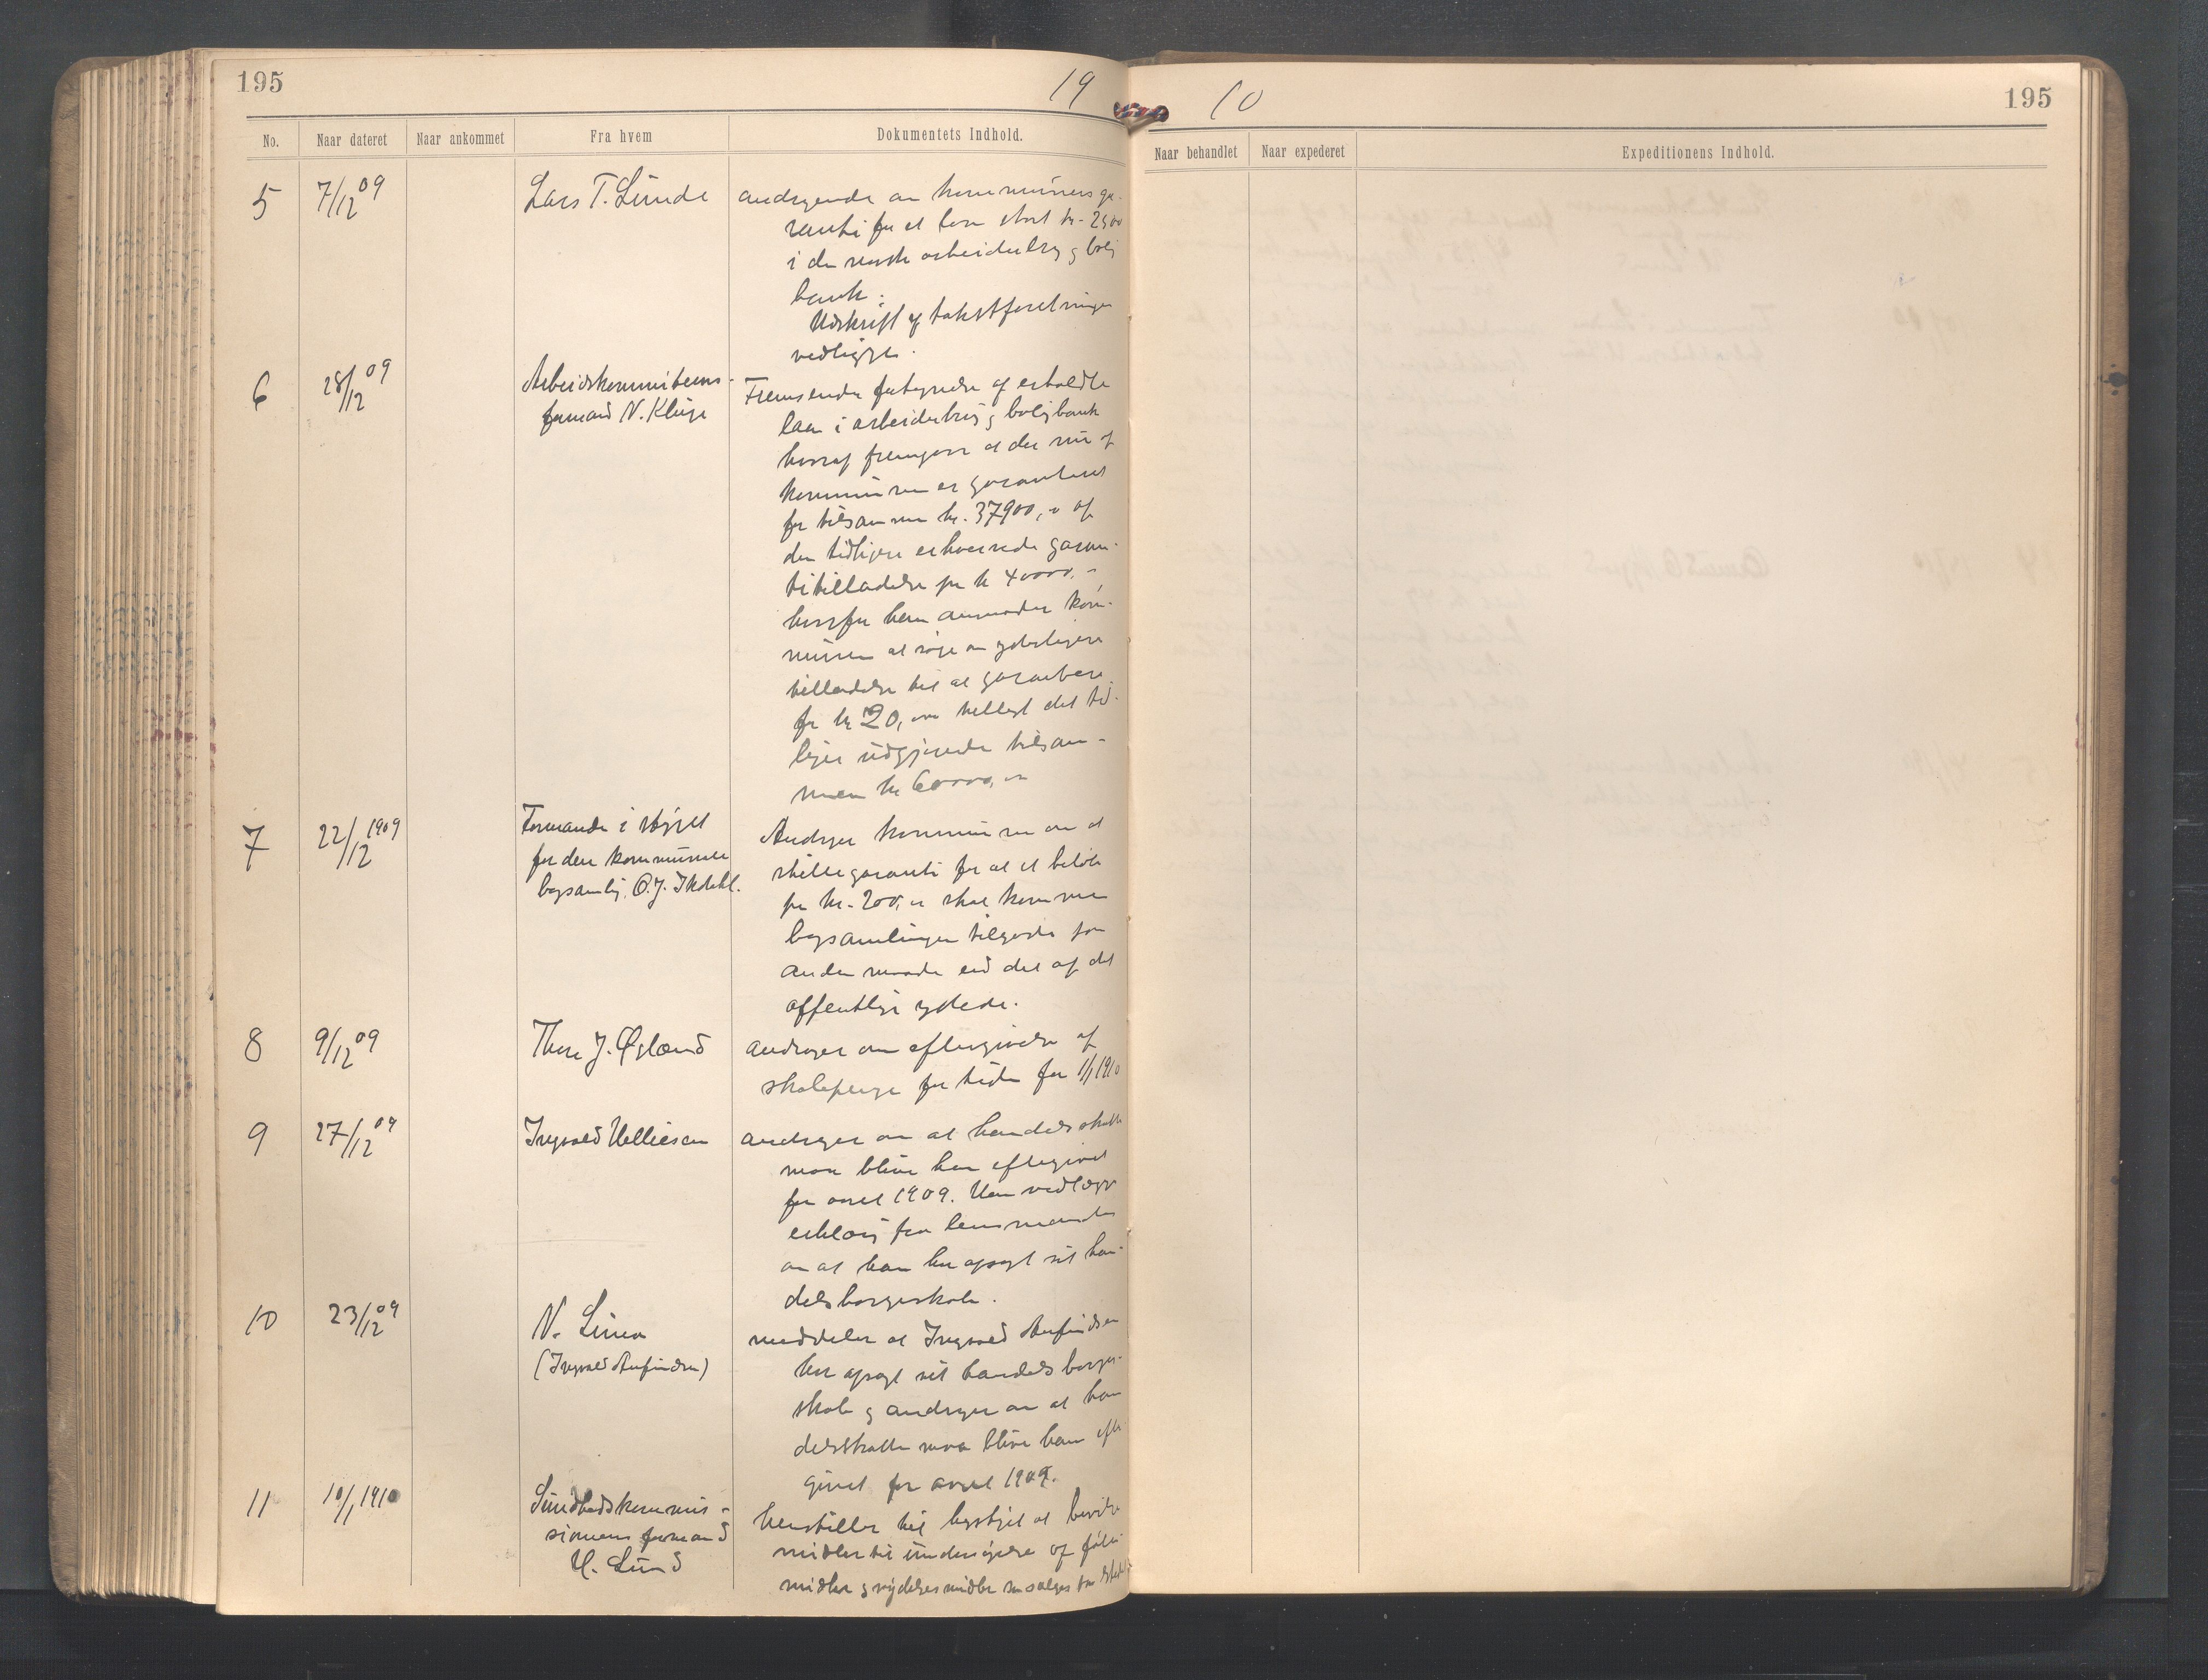 195
19
10
195
No.
Naar dateret
Naar ankommet
Fra hvem
Dokumentets Indhold.
Naar behandlet
Naar expederet
Expeditionens Indhold.
5
7/12 09
Lars T. Lunde
andragende om kommunens ga-
ranti for et laan stort kr. 2500
i den norske arbeiderbrug og bolig
bank.
Udskrift af takstforretningen
vedligger.
6
28/12 09
Arbeidskommiteens
formand N. Kluge
Fremsender fortegnelse af erholdte
laan i arbeiderbrug og boligbank
hvoraf fremgaar at der nu af
kommunen er garanteret
for tilsammen kr. 37900,- af
den tidligere erhvervede garan-
titilladelse for kr 40000,-
hvorfor han anmoder kom-
munen at søge om yderligere
tilladelse til at garantere
for kr 20,000 tillagt det tid-
ligere udgjørende tilsam-
men kr 60000,-
7
22/12 1909
Formanden i styret
for den kommunale
bogsamling, O.J. Skådel.
Andrager kommunen om at
stille garanti for at et beløb
paa kr. 200,- skal komme
bogsamlingen tilgode paa
anden maade end det af det
offentlige ydede.
8
9/12 09
Thore J. Øgland
andrager om eftergivelse af
skolepenge for tiden før 1/1 1910
9
27/12 09
Ingvald Helliesen
andrager om at handelsskatten
maa blive ham eftergivet
for aaret 1909. Han vedlægger
erklæring fra lensmanden
om at han har opsagt sit han-
delsborgerskab.
10
23/12 09
N. Lima
(Ingvald Aufindsen)
meddeler at Ingvald Aufindsen
har opsagt sit handelsborger-
skab og andrager om at han
delsskatten maa blive ham efter
givet for aaret 1909.
11
10/1 1910
Sundhedskommis-
sionens formand
H. Lund
Henstiller til herredsstyret at bevilge
midler til undersøgelse af føde-
midler og nydelsesmidler som sælges paa